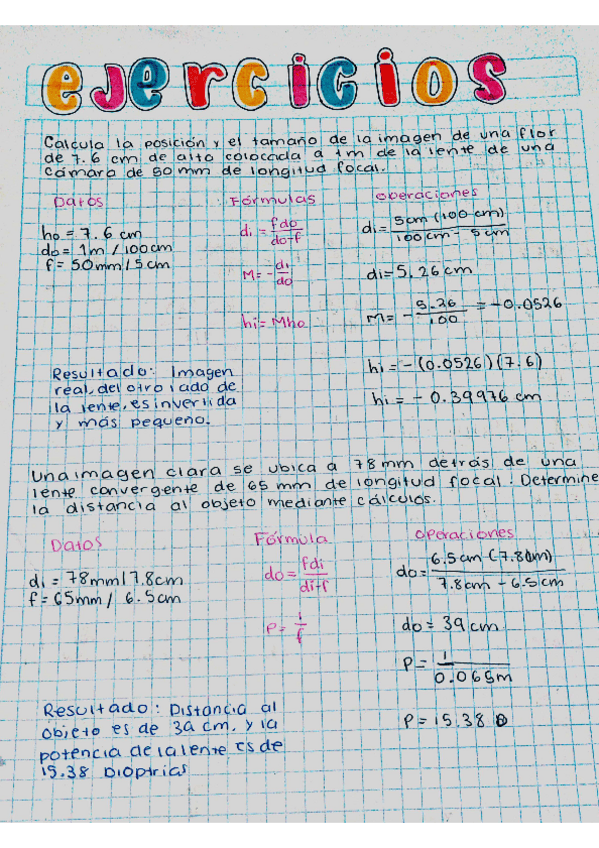 EJERCICIOS
Calcula la posición y el tamaño de la imagen de una flor
de 7.6 cm de alto colocada a 1m de la lente de una
cámara de 50 mm de longitud focal.
Datos
ho = 7.6 cm
do = 1m / 100cm
f = 50mm/5cm
Fórmulas
di = fdo / do-f
M = - di / do
hi = Mho
Operaciones
di = 5cm (100 cm) / 100cm - 5cm
di = 5.26 cm
M = - 5.26 / 100 = -0.0526
hi = -(0.0526)(7.6)
hi = - 0.39976 cm
Resultado: Imagen
real, del otro lado de
la lente, es invertida
y más pequeño.
Una imagen clara se ubica a 78 mm detrás de una
lente convergente de 65 mm de longitud focal. Determine
la distancia al objeto mediante cálculos.
Datos
di = 78mm/7.8cm
f = 65mm/ 6.5cm
Fórmula
do = fdi / di-f
P = 1 / f
Operaciones
do = 6.5cm (7.8cm) / 7.8cm - 6.5cm
do = 39 cm
P = 1 / 0.065m
P = 15.38 D
Resultado: Distancia al
objeto es de 39 cm, y la
potencia de la lente es de
15.38 Dioptrias